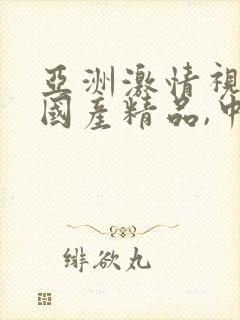 亞洲激情視
國產精品,中
緋欲丸